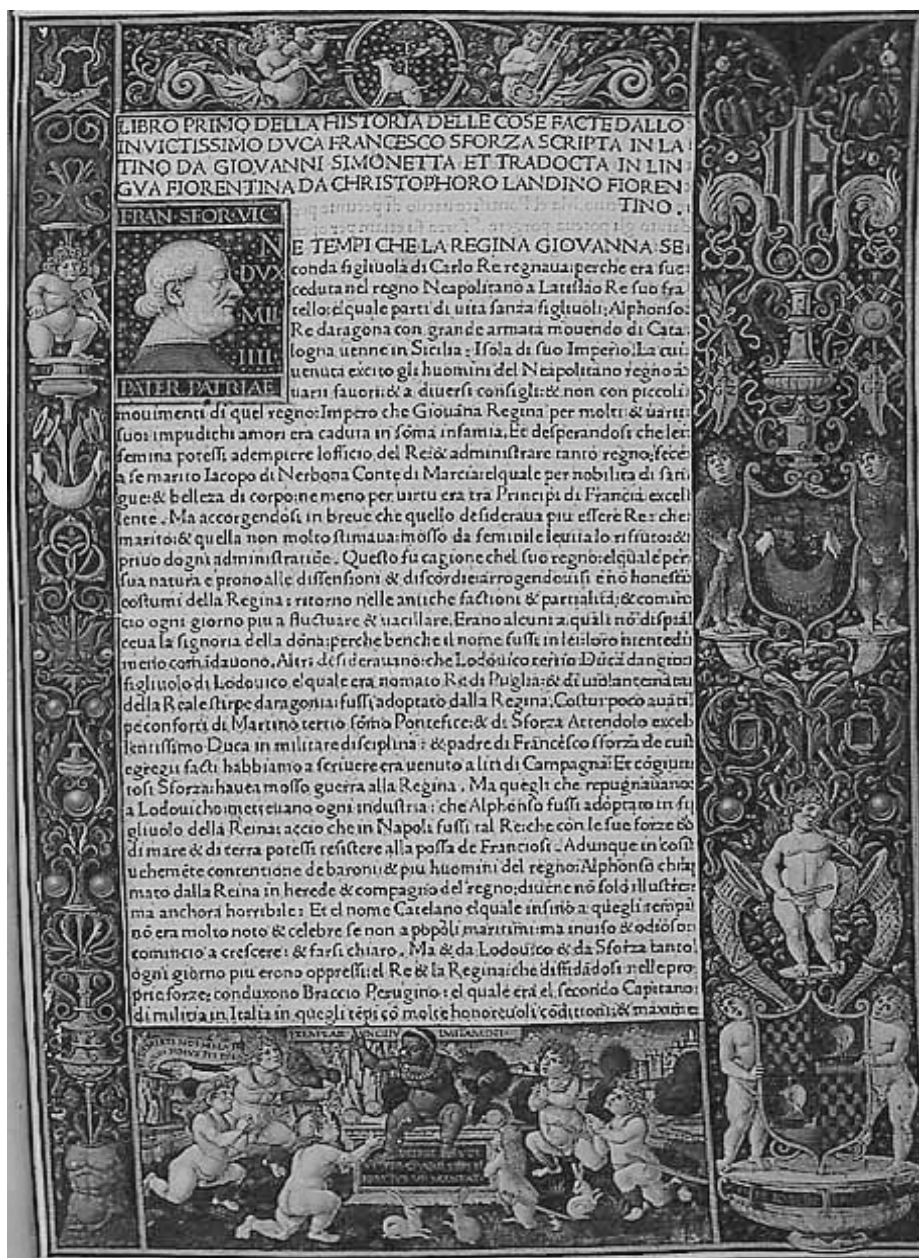 LIBRO PRIMO DELLA HISTORIA DELLE COSE FACTE DALLO
INVICTISSIMO DVCA FRANCESCO SFORZA SCRIPTA IN LA
TINO DA GIOVANNI SIMONETTA ET TRADOCTA IN LIN
GVA FIORENTINA DA CHRISTOPHORO LANDINO FIOREN
TINO.
FRAN·SFOR·VIC
DVX
MLI
IIII
PATER PATRIAE
N
E TEMPI CHE LA REGINA GIOVANNA: SE
conda figliuola di Carlo Re regnaua: perche era suc
ceduta nel regno Neapolitano a Latislao Re suo fra
tello: elquale parti di uita sanza figliuoli: Alphonso
Re daragona con grande armata mouendo di Cata
logna uenne in Sicilia: Isola di suo Imperio: La cui
uenuta excito gli huomini del Neapolitano regno a
uarii fauori: & a diuersi consigli: & non con piccoli
mouimenti di quel regno: Impero che Giouãna Regina per molti: & uarii
suoi impudichi amori era caduta in sõma infamia. Et desperandosi che lei
femina potessi adempiere lofficio del Re: & administrare tanto regno: fece
a se marito Iacopo di Nerbona Conte di Marcia: elquale per nobilita di san
gue: & belleza di corpo: ne meno per uirtu era tra Principi di Francia excel
lente. Ma accorgendosi in breue che quello desideraua piu essere Re: che
marito: & quella non molto stimaua: mosso da feminile leuita lo rifiuto: &
priuo dogni administratiõe. Questo fu cagione chel suo regno: elquale per
sua natura e prono alle dissensioni & discordie: arrogendouisi e nõ honesti
costumi della Regina: ritorno nelle antiche factioni & partialita: & comin
cio ogni giorno piu a fluctuare & uacillare. Erano alcuni a quali nõ dispia
ceua la signoria della dõna: perche benche il nome fussi in lei: loro
Altri desiderauano: che Lodouico tertio Duca dangio
figliuolo di Lodouico elquale era nomato Re di Puglia: & di
della Reale stirpe daragonia: fussi adoptato dalla Regina. Costui poco auãti
pe conforti di Martino tertio sõmo Pontefice: & di Sforza Attendolo excel
lentissimo Duca in militare disciplina: & padre di Francesco sforza de cui
egregii facti habbiamo a scriuere era uenuto a liti di Campagna: Et cõgiun
tosi Sforza: hauea mosso guerra alla Regina. Ma quegli che repugnauano
a Lodouico: metteuano ogni industria: che Alphonso fussi adoptato in fi
gliuolo della Reina: accio che in Napoli fussi tal Re: che con le sue forze &
di mare & di terra potessi resistere alla possa de Franciosi. Adunque in cosi
uehemẽte contentione de baroni: & piu huomini del regno: Alphonso chia
mato dalla Reina in herede & compagno del regno: diuẽne nõ solo illustre:
ma anchora horribile: Et el nome Catelano elquale insino a quegli tempi
nõ era molto noto & celebre se non a popoli maritimi: ma inuiso & odioso:
comincio a crescere: & farsi chiaro. Ma & da Lodouico & da Sforza tanto
ogni giorno piu erono oppressi: el Re & la Regina: che diffidãdosi nelle pro
prie forze: conduxono Braccio Perugino: el quale era el secondo Capitano
di militia in Italia in quegli tẽpi cõ molte honoreuoli cõditioni: & maxime